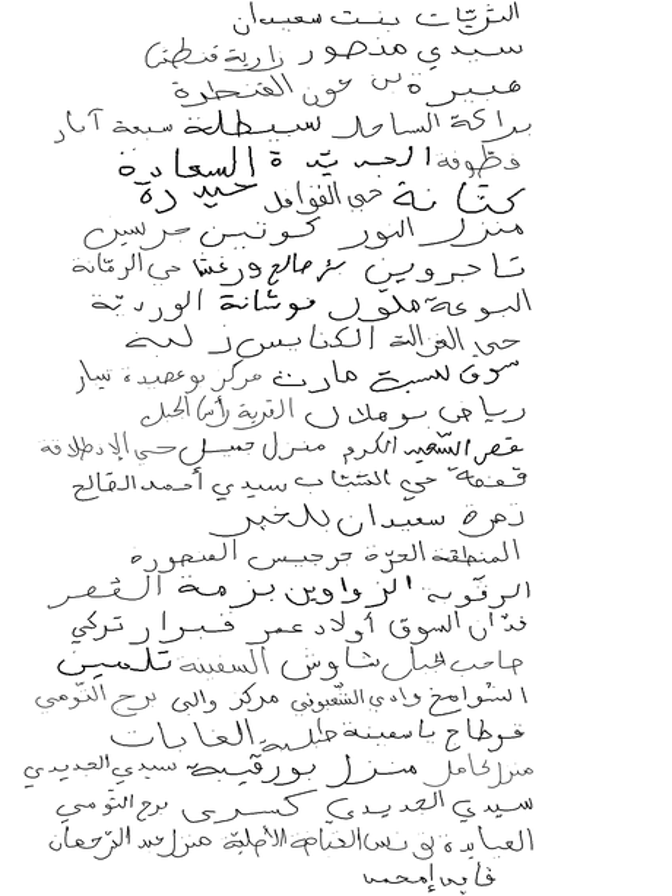 الثريّات بنت سعيدان
سيدي منصور زاوية قنطش
هبيرة بن عون القنطرة
براكة الساحل سبيطلة سبعة آبار
قطوفة الجديّدة السعادة
كتّانة حي القوافل حيدرة
منزل النور كوتين جرسين
تاجروين بئر صالح ورغش حي الرمّانة
البوعة ملّول فوشانة الورديّة
حي الغزالة الكنايس زلبة
سوق لسبت مارث مركز بوعصيدة تيبار
رياض بوهلال القرية رأس الجبل
قصر السّعيد الكرم منزل جميل حي الإنطلاقة
قفصة حي الشباب سيدي أحمد الصّالح
زهرة سعيدان بلخير
المنطقة الحرّة جرجيس المنصورة
الرقّوبة الزواوين بزمة القصر
فدّان السوق أولاد عمر قبرار تركي
صاحب الجبل شاوش السفينة تلمين
الشوامخ وادي الشّعبوني مركز والي برج التّومي
قرطاج ياسمينة طلبة الغابات
منزل كامل منزل بورقيبة سيدي الجديدي
سيدي الجديدي كسرى برج التّومي
العبايدة تونس العناصة الأصليّة منزل عبد الرّحمان
قايد إمحمد